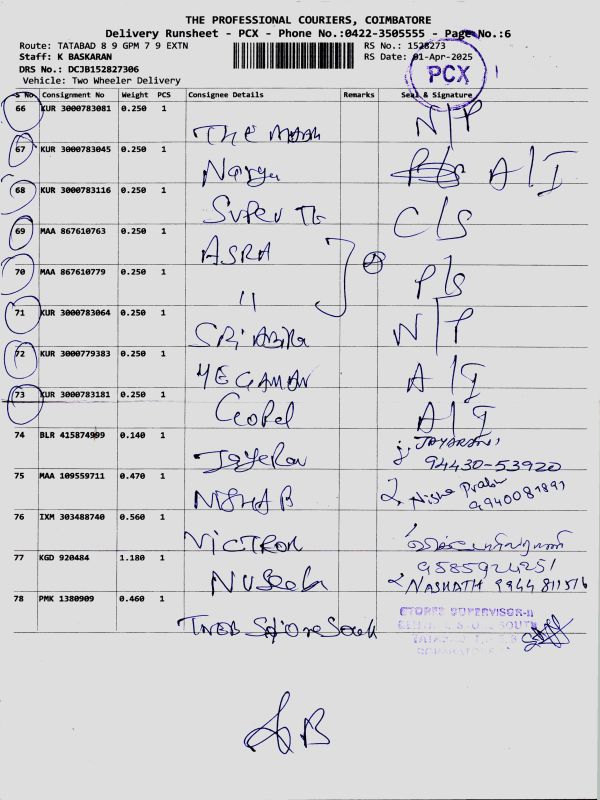 THE PROFESSIONAL COURIERS, COIMBATORE
Delivery Runsheet - PCX - Phone No.:0422-3505555 - Page No.:6
Route: TATABAD 8 9 GPM 7 9 EXTN RS No.: 1528273
Staff: K BASKARAN RS Date: 01-Apr-2025
DRS No.: DCJB152827306
Vehicle: Two Wheeler Delivery
PCX
S No Consignment No Weight PCS Consignee Details Remarks Seal & Signature
66 KUR 3000783081 0.250 1 The N/P
67 KUR 3000783045 0.250 1 A/I
68 KUR 3000783116 0.250 1 Super C/S
69 MAA 867610763 0.250 1 ASRA
70 MAA 867610779 0.250 1 " P/S
71 KUR 3000783064 0.250 1 SRi N/P
72 KUR 300779383 0.250 1 A/I
73 KUR 3000783181 0.250 1 Gopal A/I
74 BLR 415874999 0.140 1 JAYARANI
94430-53920
75 MAA 109559711 0.470 1 Nisha
9940081891
76 IXM 303488740 0.560 1 VICTRON
77 KGD 920484 1.180 1 NASHATH 9944811516
78 PMK 1380909 0.460 1 TNEB STORES SUPERVISOR-II